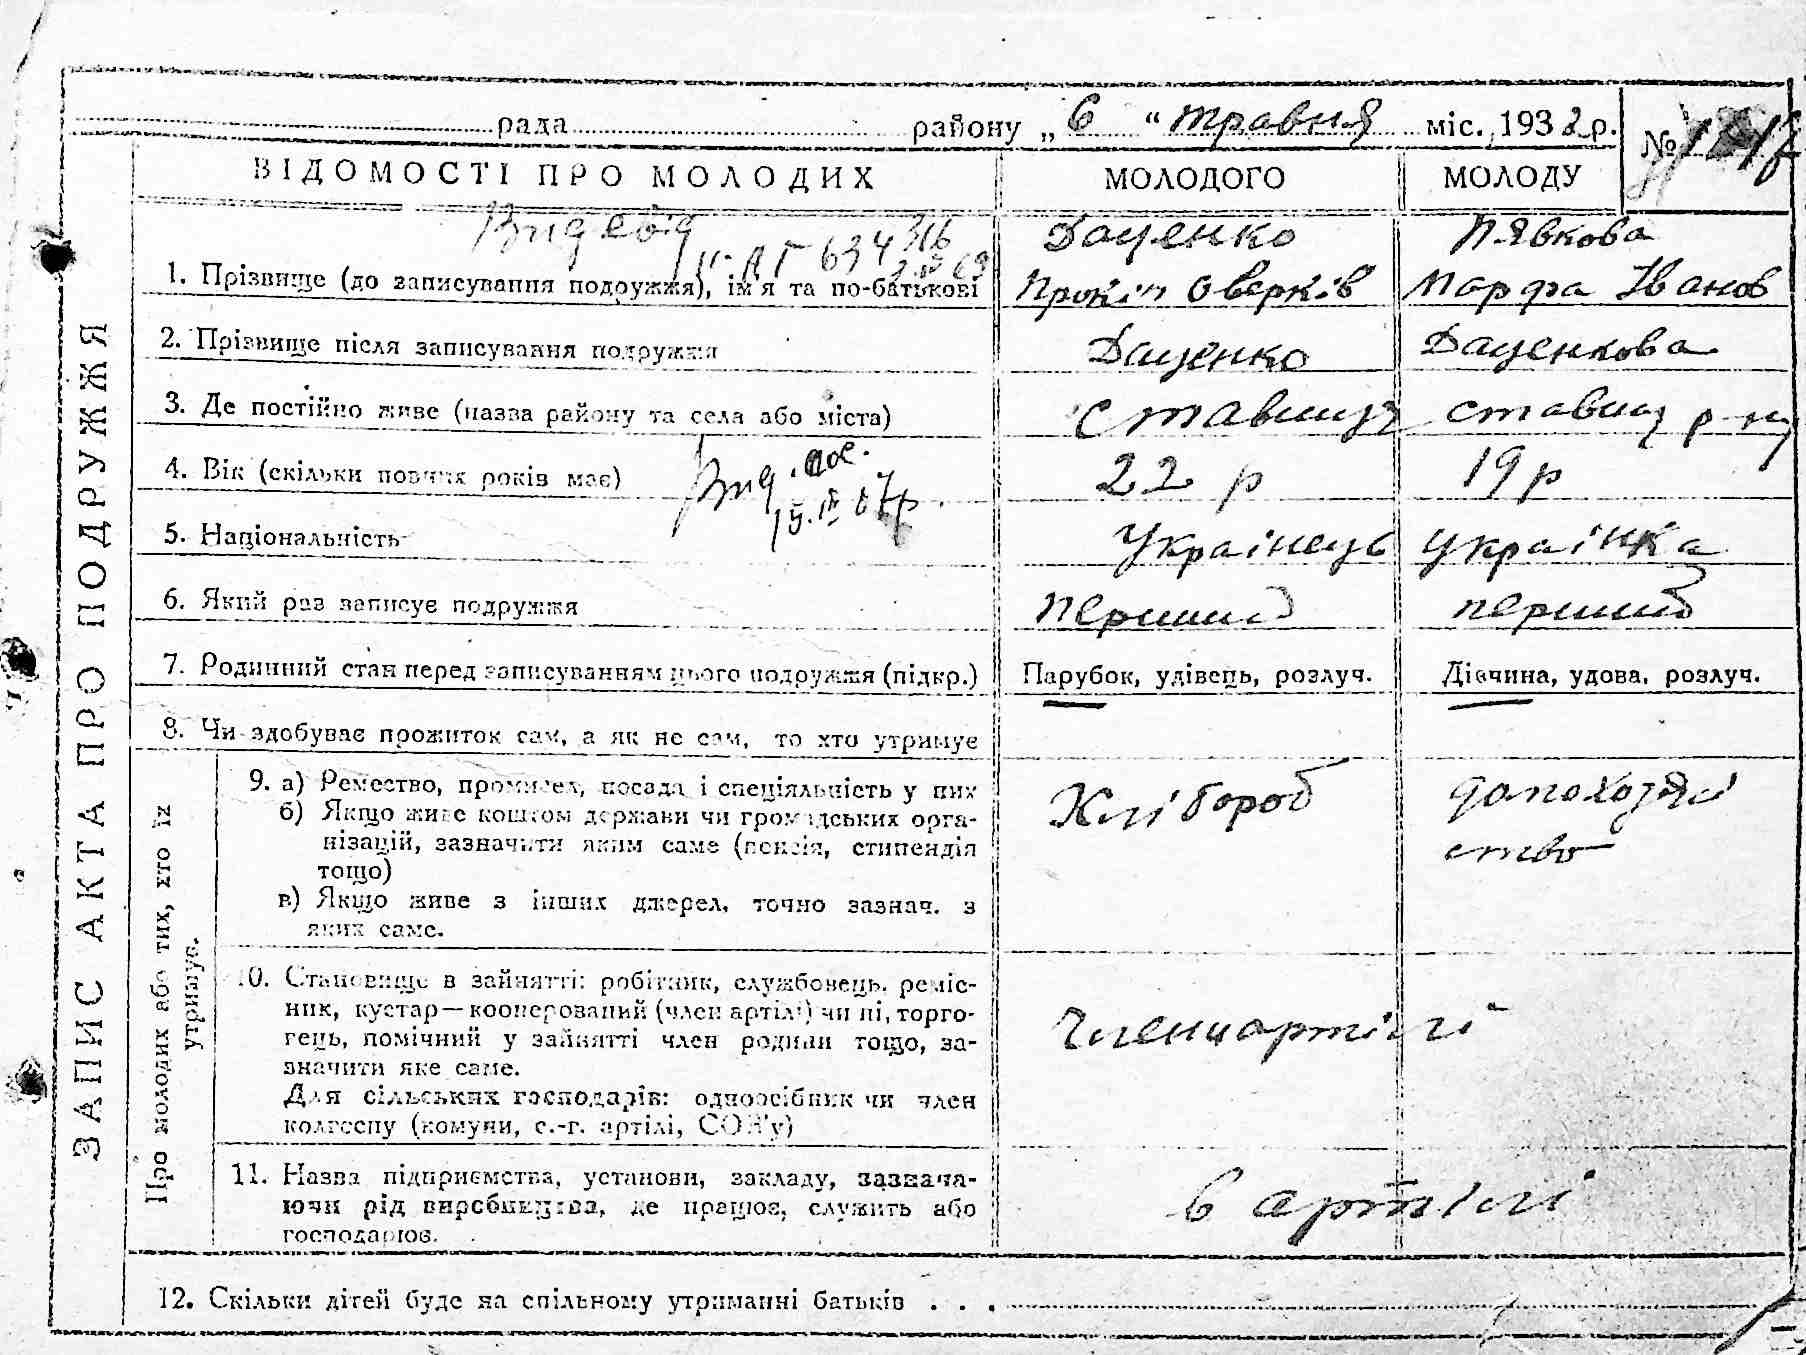 рада району „6“ травня міс. 1932р.
№ 17
ВІДОМОСТІ ПРО МОЛОДИХ МОЛОДОГО МОЛОДУ
ЗАПИС АКТА ПРО ПОДРУЖЖЯ
Даценко Пявкова
1. Прізвище (до записування подружжя), ім'я та по-батькові Прокіп Оверків Марфа Іванов
2. Прізвище після записування подружжя Даценко Даценкова
3. Де постійно живе (назва району та села або міста) Ставищ ставищ р-ну
4. Вік (скільки повних років має) 22 р 19 р
5. Національність Українець українка
6. Який раз записує подружжя Перший перший
7. Родинний стан перед записуванням цього подружжя (підкр.) Парубок, удівець, розлуч. Дівчина, удова, розлуч.
8. Чи здобуває прожиток сам, а як не сам, то хто утримує
Про молодих або тих, хто їх
утримує.
9. а) Ремество, промисел, посада і спеціяльність у них Хлібороб
б) Якщо живе коштом держави чи громадських орга-
нізацій, зазначити яким саме (пенсія, стипендія
тощо)
в) Якщо живе з інших джерел, точно зазнач. з
яких саме.
10. Становище в зайнятті: робітник, службовець, реміс-
ник, кустар—кооперований (член артілі) чи ні, торго-
гець, помічний у зайнятті член родини тощо, за-
значити яке саме. Член артілі
Для сільських господарів: одноосібник чи член
колгоспу (комуни, с.-г. артілі, СОЗ'у)
11. Назва підприємства, установи, закладу, зазнача-
ючи рід виробництва, де працює, служить або в артілі
господарює.
12. Скільки дітей буде на спільному утриманні батьків . . .